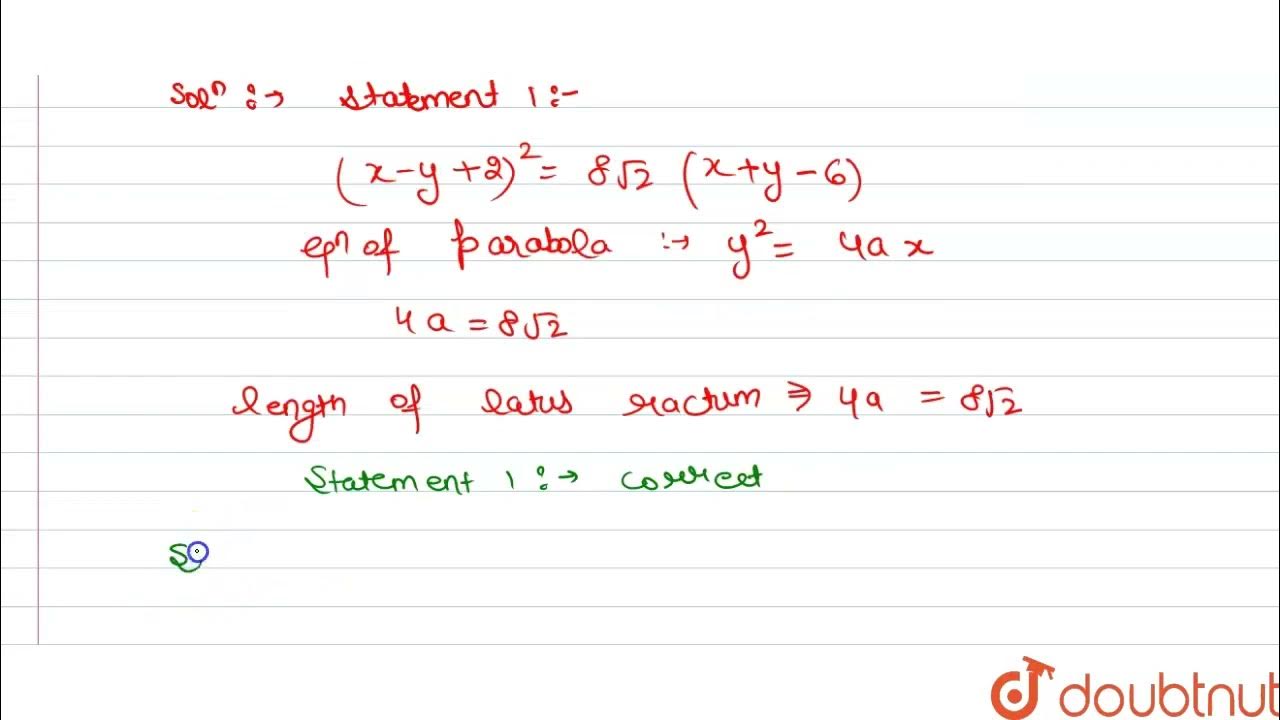 Solⁿ :→ Statement 1 :-
(x-y+2)² = 8√2 (x+y-6)
eqⁿ of parabola :→ y² = 4ax
4a = 8√2
length of latus ractum ⇒ 4a = 8√2
Statement 1 :→ correct
S
doubtnut